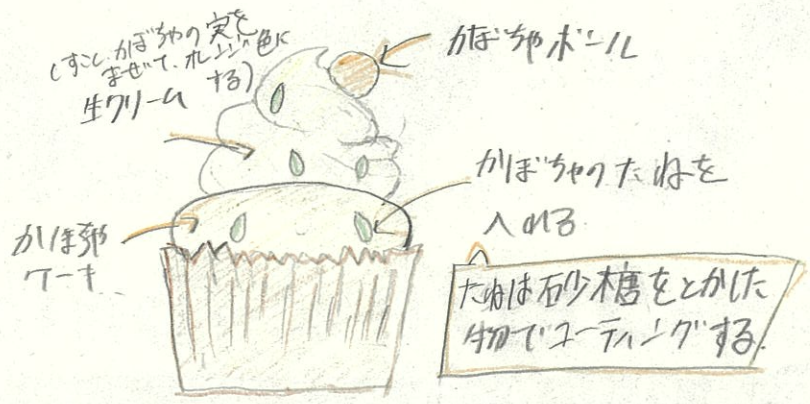 (すこしかぼちゃの実を
まぜて、オレンジ色に
する)
生クリーム
かぼちゃボール
かぼちゃのたねを
入れる
かぼちゃ
ケーキ
たねは砂糖をとかした
物でコーティングする.